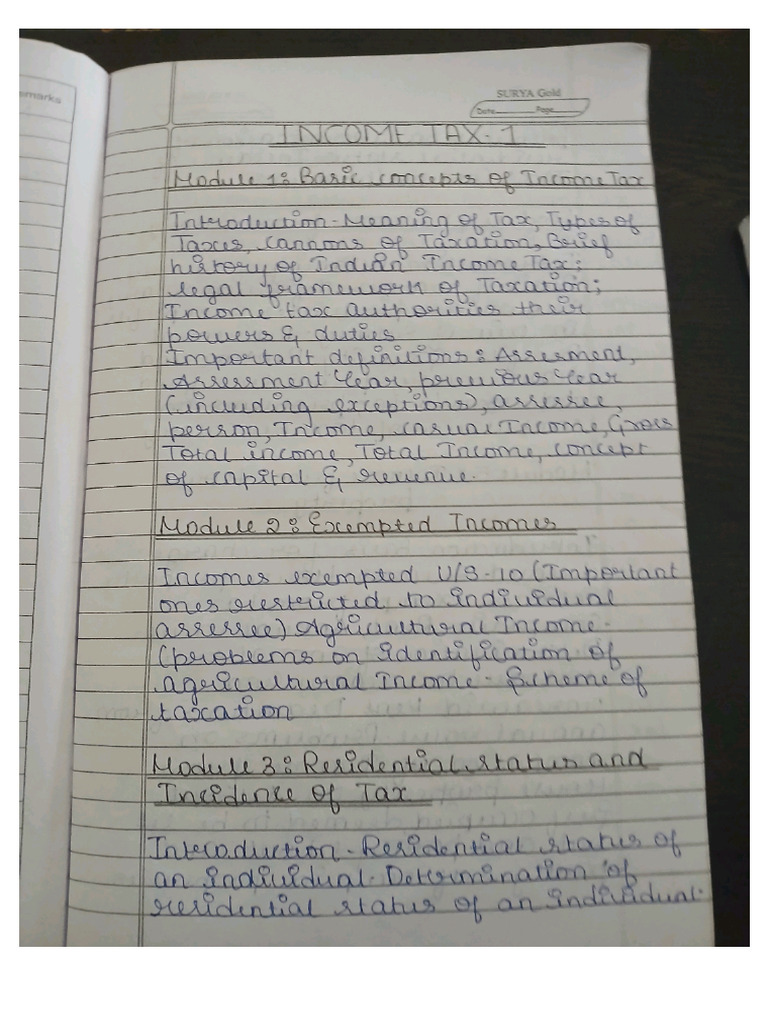 emarks
SURYA Gold
Date Page
INCOME TAX-1
Module 1: Basic concepts of Income Tax
Introduction-Meaning of Tax, Types of
Taxes, cannons of Taxation, Brief
history of Indian Income Tax;
legal framework of Taxation;
Income tax authorities their
powers & duties
Important definitions: Assesment,
Assessment Year, previous Year
(including exceptions), assessee,
person, Income, casual Income, Gross
Total income, Total Income, concept
of capital & revenue.
Module 2: Exempted Incomes
Incomes exempted U/S-10 (Important
ones restricted to individual
assessee) Agricultural Income-
(problems on identification of
agricultural Income - Scheme of
taxation
Module 3: Residential status and
Incidence of Tax
Introduction-Residential status of
an individual. Determination of
residential status of an individual.